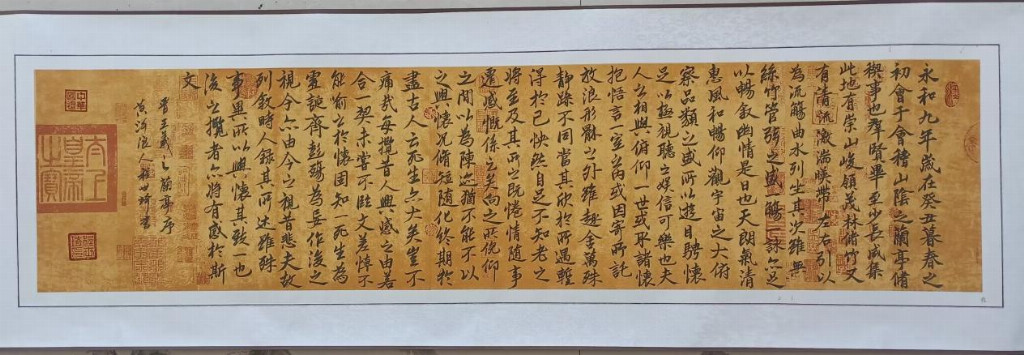 永和九年歲在癸丑暮春之
初會于會稽山陰之蘭亭脩
禊事也群賢畢至少長咸集
此地有崇山峻領茂林脩竹又
有清流激湍暎帶左右引以
為流觴曲水列坐其次雖無
絲竹管弦之盛一觴一詠亦足
以暢敘幽情是日也天朗氣清
惠風和暢仰觀宇宙之大俯
察品類之盛所以遊目騁懷
足以極視聽之娛信可樂也夫
人之相與俯仰一世或取諸懷
抱悟言一室之內或因寄所託
放浪形骸之外雖趣舍萬殊
靜躁不同當其欣於所遇暫
得於己怏然自足不知老之
將至及其所之既惓情隨事
遷感慨係之矣向之所欣俛仰
之間以為陳迹猶不能不以
之興懷況脩短隨化終期於
盡古人云死生亦大矣豈不
痛哉每攬昔人興感之由若
合一契未嘗不臨文嗟悼不
能喻之於懷固知一死生為
虛誕齊彭殤為妄作後之
視今亦由今之視昔悲夫故
列敘時人錄其所述雖世殊
事異所以興懷其致一也
後之攬者亦將有感於斯
文
書王羲之蘭亭序
黃河浪人
太上皇帝之寶